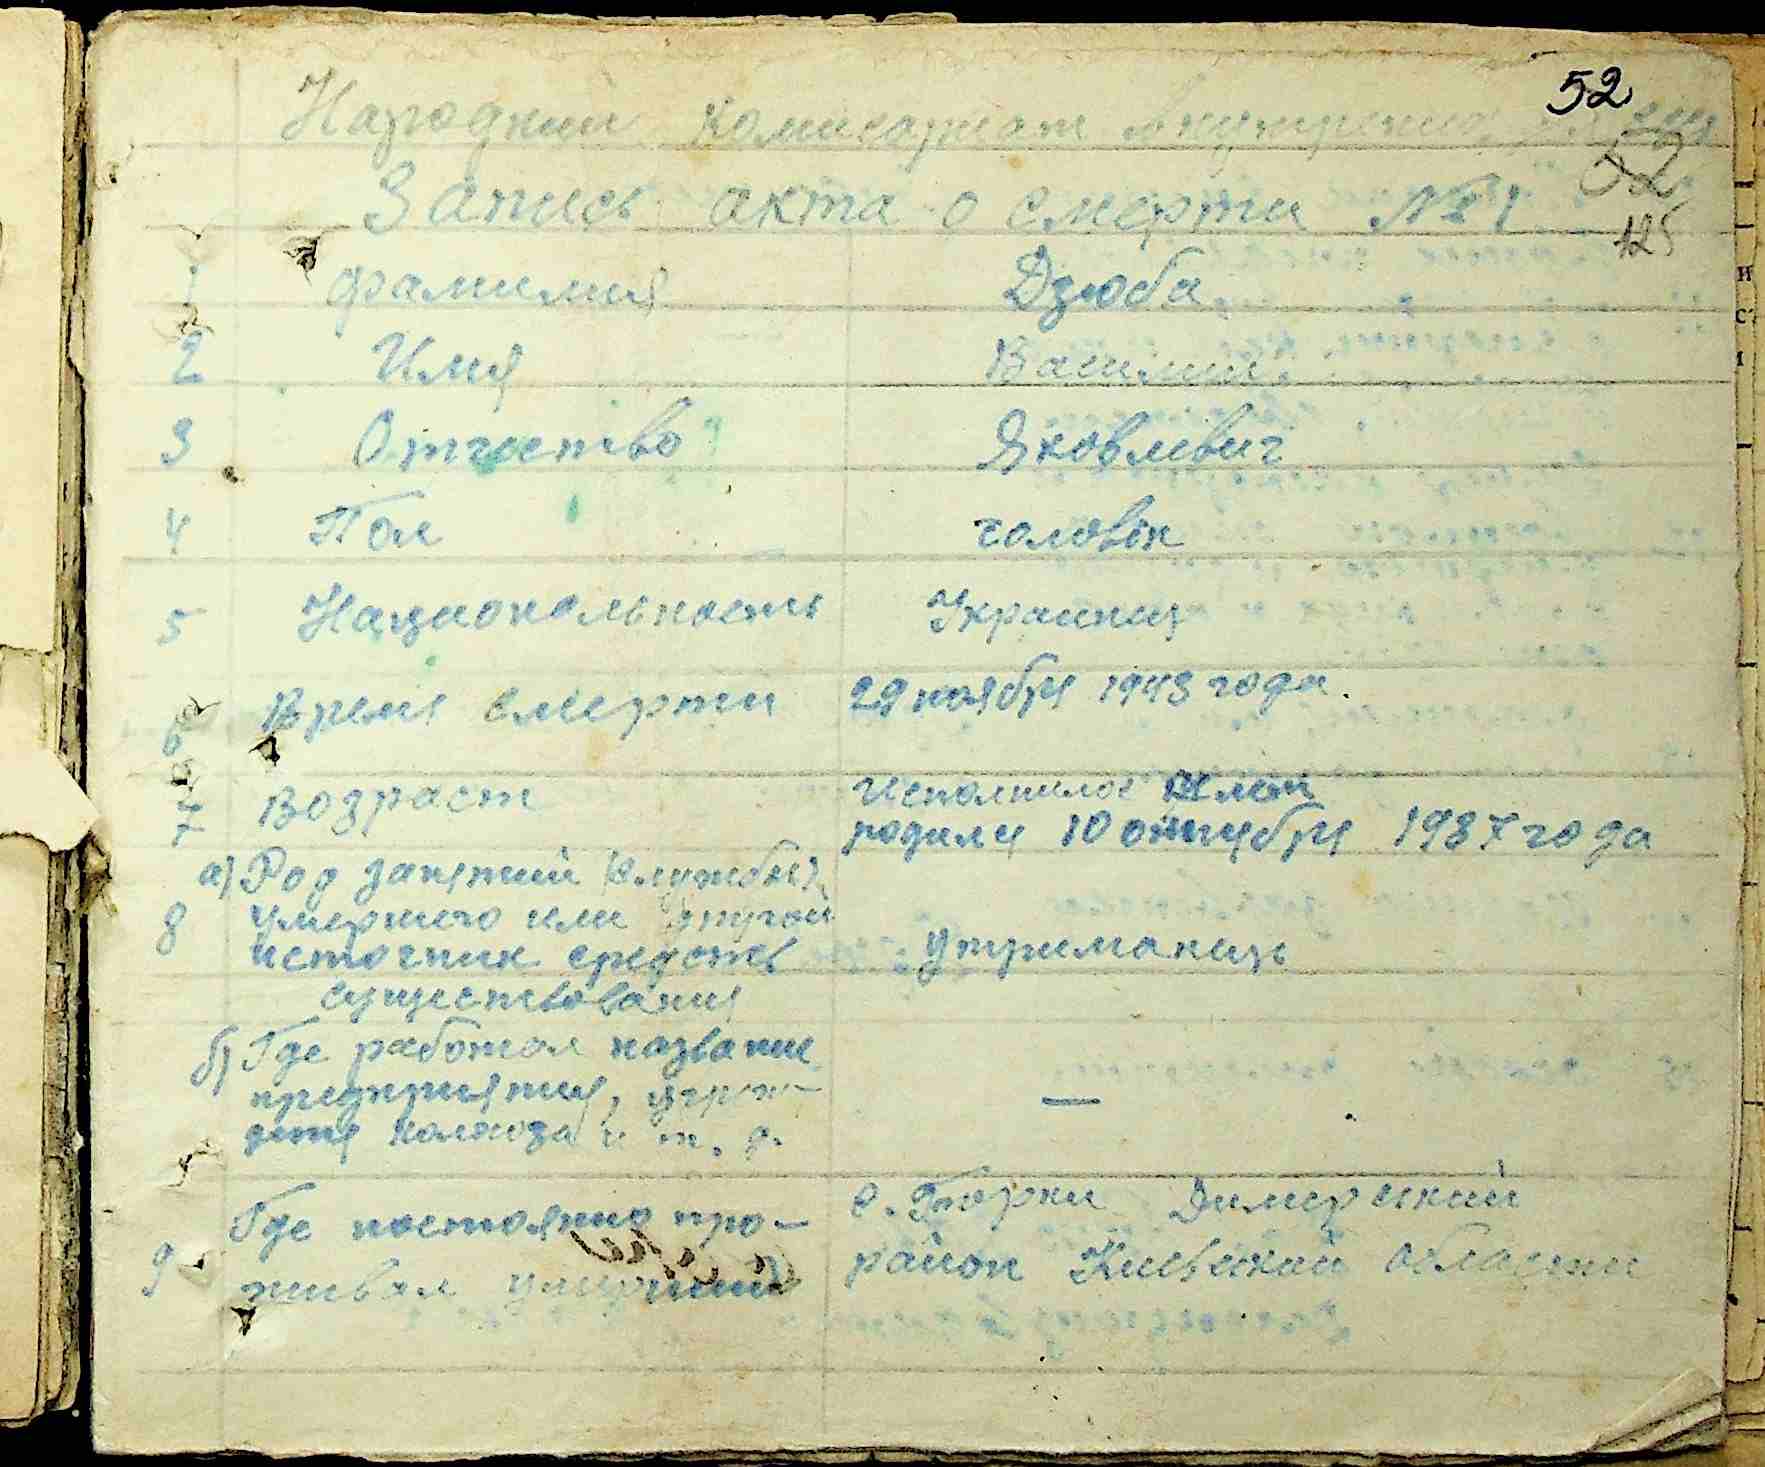 52
Народний комисариат внутрених
52
Запись акта о смерти №1
125
1 фамилия Дзюба
2 Имя Василий
3 Отчество Яковлевич
4 Пол чоловік
5 Национольность Украинец
6 Время смерти 29 ноября 1943 года.
7 Возраст Исполнилос лет
родиля 10 октября 1937 года
а) Род занятий (службы)
8 умершего или другой
источник средств утриманиць
существования
б) Где работал название
предприятия, учреж-
дения колхоза и т. д. —
9 Где постоянно про- с. Борки Димерский
живал умерший район Киевской области